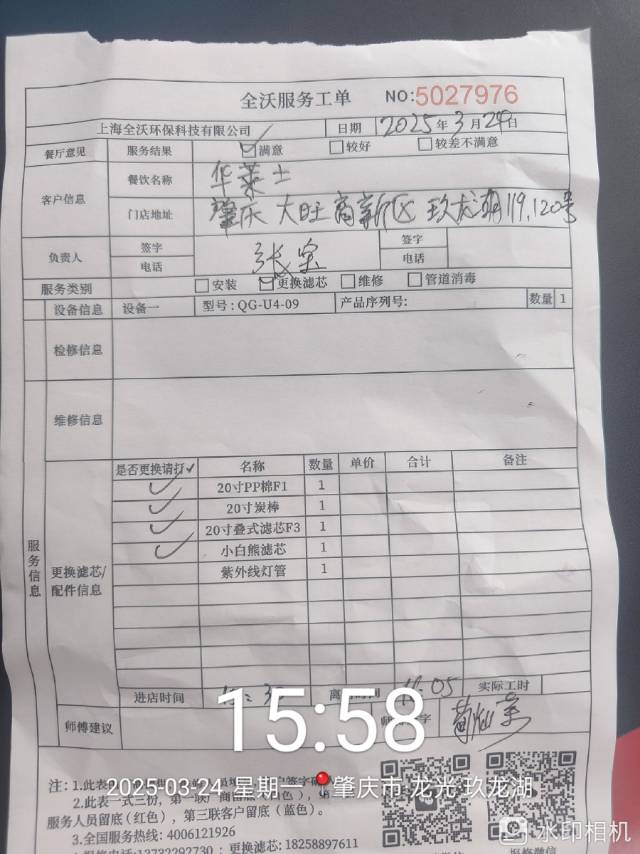 全沃服务工单 NO:5027976
上海全沃环保科技有限公司 日期 2025年3月24日
餐厅意见 服务结果 满意 较好 较差不满意
客户信息 餐饮名称 华莱士
门店地址 肇庆大旺高新区玖龙湖119,120号
负责人 签字 签字
电话 电话
服务类别 安装 更换滤芯 维修 管道消毒
设备信息 设备一 型号:QG-U4-09 产品序列号: 数量 1
检修信息
维修信息
服务信息
更换滤芯/配件信息
是否更换请打✓ 名称 数量 单价 合计 备注
✓ 20寸PP棉F1 1
✓ 20寸炭棒 1
✓ 20寸叠式滤芯F3 1
✓ 小白熊滤芯 1
紫外线灯管 1
进店时间 离 时间 05 实际工时
师傅建议 师 字
15:58
2025-03-24 星期一 肇庆市 龙光·玖龙湖
注: 1.此表
2.此表一式三份, 第一联
服务人员留底(红色), 第三联客户留底(蓝色)。
3.全国服务热线: 4006121926
13732292730 ; 更换滤芯: 18258897611
水印相机